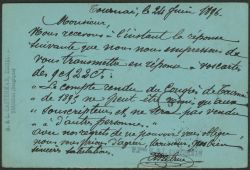 Tournai, le 24 Juin 1896.
Monsieur,
Nous recevons à l'instant la réponse
suivante que nous nous empressons de
vous transmettre en réponse à vos carte
des 9 et 23 Ct:
"Le compte rendu du Congrès de Tournai
"de 1895 ne peut être qu'aux
"souscripteurs et ne sera pas vendu
"à d'autres personnes."
Avec nos regrets de ne pouvoir vous
nous vous prions d'agréer, Monsieur, nos bien
sincères salutations.